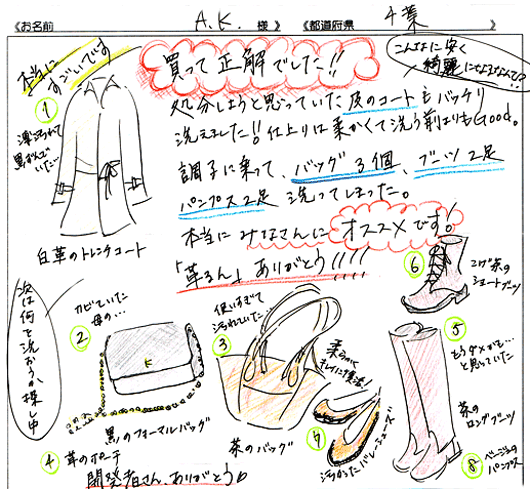 《お名前　A.K.　様》《都道府県　千葉　》
本当に
すごいです
買って正解でした!!
こんなに安く
綺麗になるなんて?
処分しようと思っていた皮のコートもバッチリ
洗えました!!仕上りに柔かくて洗う前よりもGood。
調子に乗って、バッグ3個、ブーツ2足
パンプス2足 洗ってしまった。
本当にみなさんにオススメです!
「革るん」ありがとう!!!!
①
薄汚れて
黒ずんで
いた…
白革のトレンチコート
次は何を洗おうか探し中
②
カビていた
母の…
黒のフォーマルバッグ
③
使いすぎて
汚れていた
茶のバッグ
④ 革のポーチ
開発者さん、ありがとう
柔らかく
キレイに復活!
⑦
汚なかったバレーシューズ
⑥
こげ茶の
ショートブーツ
⑤
もうダメかも…
と思っていた
茶の
ロングブーツ
⑧ ベージュの
パンプス